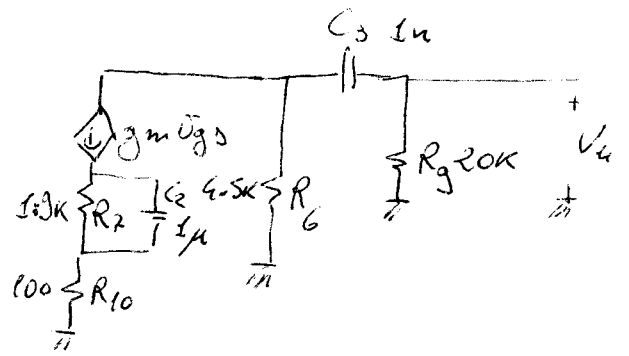 C3 1n
gm Vgs
1.9K R7
C2
1μ
4.5K R6
Rg 20K
+
Vu
100 R10